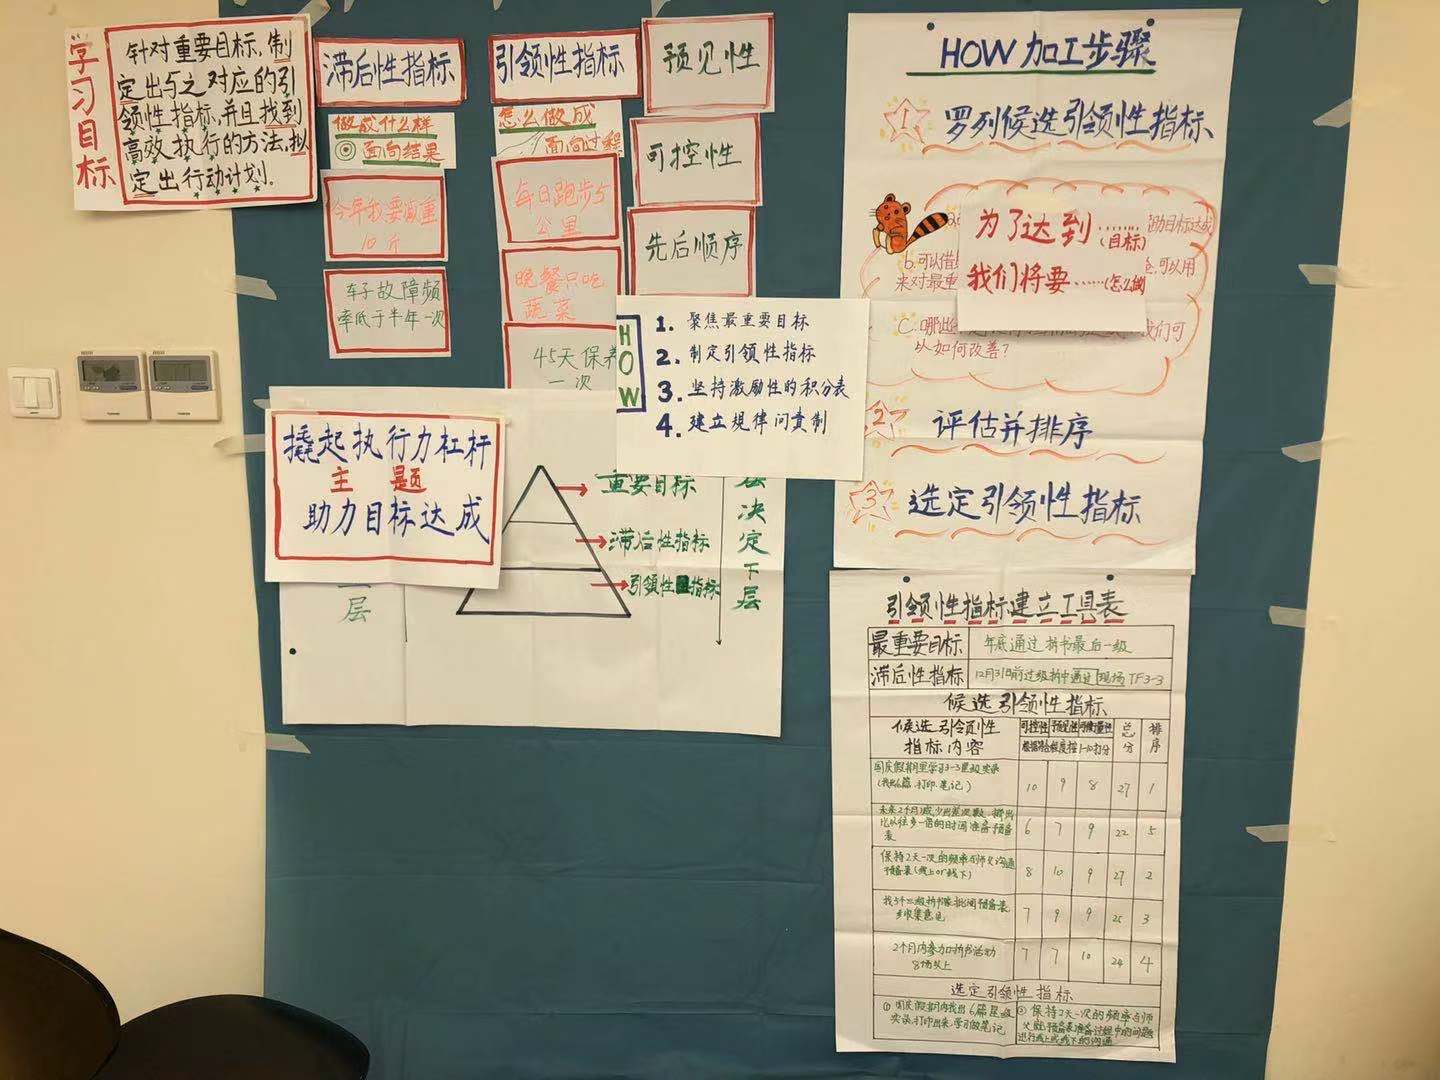 学习目标
针对重要目标,制
定出与之对应的引
领性指标,并且找到
高效执行的方法,拟
定出行动计划.
滞后性指标
做成什么样
面向结果
今年我要减重
10斤
车子故障频
率低于半年一次
引领性指标
怎么做成
面向过程
每日跑步5
公里
晚餐只吃
蔬菜
45天保养
一次
预见性
可控性
先后顺序
HOW
1. 聚焦最重要目标
2. 制定引领性指标
3. 坚持激励性的积分表
4. 建立规律问责制
撬起执行力杠杆
主题
助力目标达成
重要目标
滞后性指标
引领性指标
层决定下层
层
HOW加工步骤
1 罗列候选引领性指标
助目标达成
为了达到……(目标)
我们将要……(怎么做)
b.可以借
可以用
来对最重
C.哪
我们可
以如何改善?
2 评估并排序
3 选定引领性指标
引领性指标建立工具表
最重要目标 年底通过拆书最后一级
滞后性指标 12月31日前过级拆书通过现场TF3-3
候选引领性指标
候选引领性
指标内容
可控性 预见性 可衡量性 总分 排序
根据符合程度按1-10打分
国庆假期里学习3-3星级实录
(找出6篇.打印.笔记) 10 9 8 27 1
未来2个月减少出差次数,挤出
比以往多一倍的时间准备预备
表 6 7 9 22 5
保持2天一次的频率与师父沟通
预备表(线上or线下) 8 10 9 27 2
找3个二级拆书家批阅预备表,
并收集意见 7 9 9 25 3
2个月内参加拆书活动
8场以上 7 7 10 24 4
选定引领性指标
① 国庆假期内找出6篇星级
实录,打印出来,学习做笔记
② 保持2天一次的频率与师
父就预备表准备过程中的问题
进行线上或线下的沟通